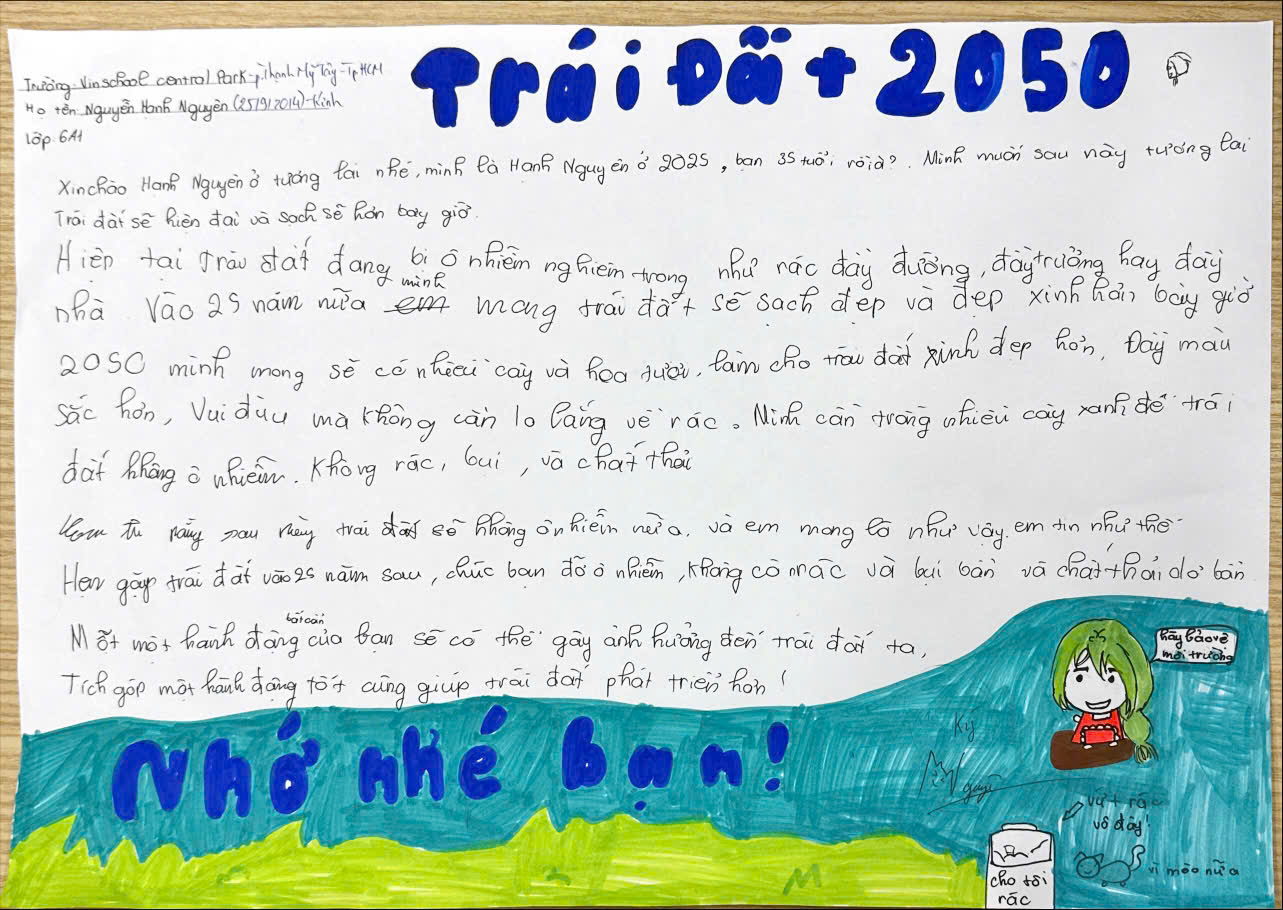 Trái Đất 2050
Trường: Vinschool central Park - p.Thạnh Mỹ Tây - Tp HCM
Họ tên: Nguyễn Hạnh Nguyên (25/9/2014) - Kinh
Lớp: 6A1
Xin chào Hạnh Nguyên ở tương lai nhé, mình là Hạnh Nguyên ở 2025, bạn 35 tuổi rồi à?. Mình muốn sau này tương lai
Trái đất sẽ hiện đại và sạch sẽ hơn bây giờ.
Hiện tại trái đất đang bị ô nhiễm nghiêm trọng như rác đầy đường, đầy trường hay đầy
nhà. Vào 25 năm nữa mình mong trái đất sẽ sạch đẹp và đẹp xinh hơn bây giờ
2050 mình mong sẽ có nhiều cây và hoa tươi, làm cho trái đất xinh đẹp hơn, Đầy màu
sắc hơn, Vui đùa mà không cần lo lắng về rác. Mình cần trồng nhiều cây xanh để trái
đất không ô nhiễm. Không rác, bụi, và chất thải
tin rằng sau này trái đất sẽ không ô nhiễm nữa, và em mong là như vậy, em tin như thế
Hẹn gặp trái đất vào 25 năm sau, chúc bạn đỡ ô nhiễm, không có rác và bụi bẩn và chất thải dơ bẩn
Mỗi một hành động bất cẩn của bạn sẽ có thể gây ảnh hưởng đến trái đất ta,
Tích góp một hành động tốt cũng giúp trái đất phát triển hơn!
hãy bảo vệ
môi trường
Nhớ nhé bạn!
Ký
Nguyên
vứt rác
vô đây!
cho tôi
rác
vì mèo nữa